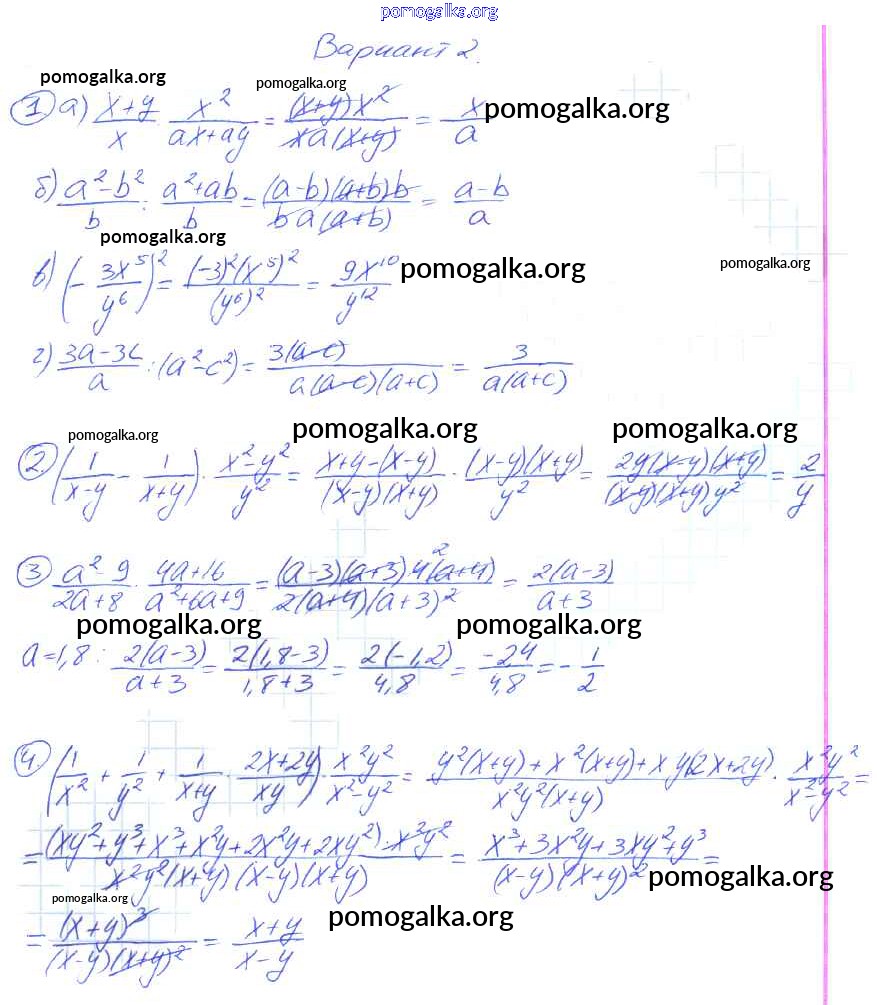 pomogalka.org
Вариант 2.
pomogalka.org pomogalka.org
① а) (x+y)/x · x²/(ax+ay) = (x+y)x²/(xa(x+y)) = x/a pomogalka.org
б) (a²-b²)/b : (a²+ab)/b = (a-b)(a+b)b/(ba(a+b)) = (a-b)/a
pomogalka.org
в) (-3x⁵/y⁶)² = (-3)²(x⁵)²/(y⁶)² = 9x¹⁰/y¹² pomogalka.org pomogalka.org
г) (3a-3c)/a : (a²-c²) = 3(a-c)/(a(a-c)(a+c)) = 3/(a(a+c))
pomogalka.org pomogalka.org pomogalka.org
② (1/(x-y) - 1/(x+y)) · (x²-y²)/y² = (x+y-(x-y))/((x-y)(x+y)) · (x-y)(x+y)/y² = 2y(x-y)(x+y)/((x-y)(x+y)y²) = 2/y
③ (a²-9)/(2a+8) · (4a+16)/(a²+6a+9) = (a-3)(a+3)4²(a+4)/(2(a+4)(a+3)²) = 2(a-3)/(a+3)
pomogalka.org pomogalka.org
a=1,8: 2(a-3)/(a+3) = 2(1,8-3)/(1,8+3) = 2(-1,2)/4,8 = -2,4/4,8 = -1/2
④ (1/x² + 1/y² + 1/(x+y) · (2x+2y)/(xy)) · x²y²/(x²-y²) = (y²(x+y)+x²(x+y)+xy(2x+2y))/(x²y²(x+y)) · x²y²/(x²-y²) =
= (xy²+y³+x³+x²y+2x²y+2xy²)·x²y²/(x²y²(x+y)(x-y)(x+y)) = (x³+3x²y+3xy²+y³)/((x-y)(x+y)²) =
pomogalka.org
pomogalka.org pomogalka.org
= (x+y)³/((x-y)(x+y)²) = (x+y)/(x-y)